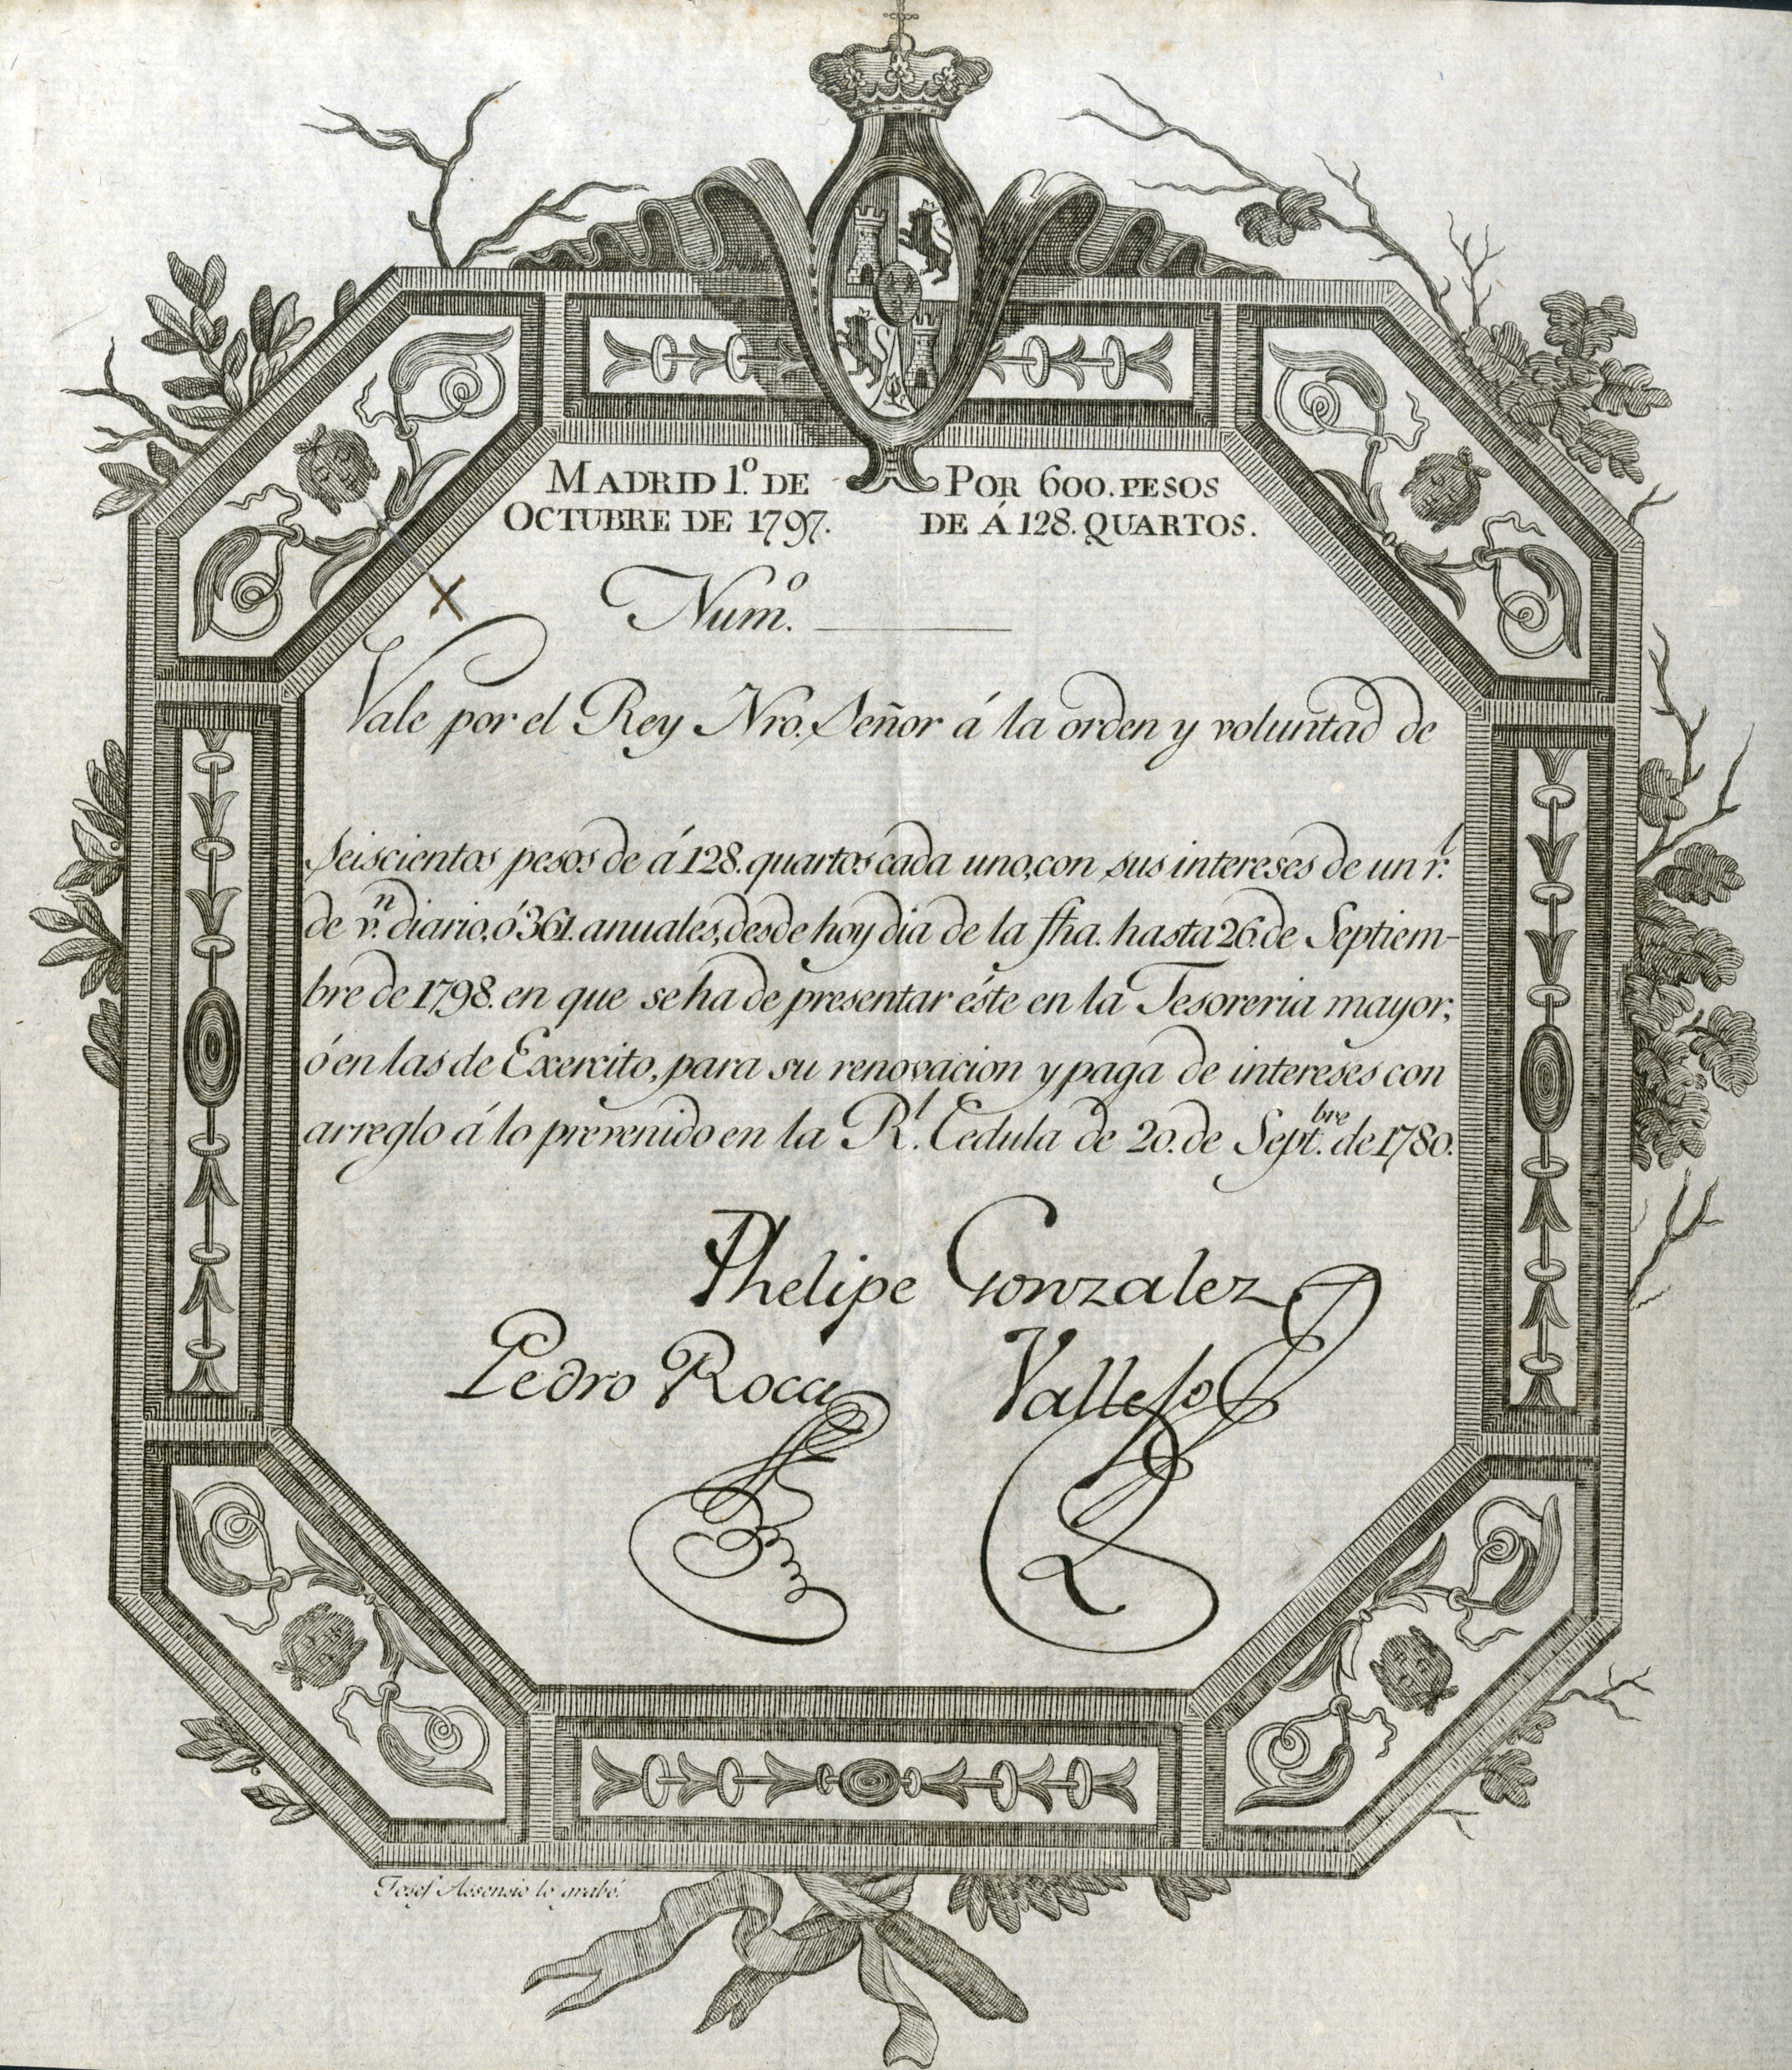 MADRID 1.º DE
OCTUBRE DE 1797.
POR 600. PESOS
DE Á 128. QUARTOS.
Num.º
Vale por el Rey Nro. Señor á la orden y voluntad de
Seiscientos pesos de á 128. quartos cada uno, con sus intereses de un r.l
de v.n diario, ó 361. anuales, desde hoy dia de la fha. hasta 26. de Septiem-
bre de 1798. en que se ha de presentar éste en la Tesoreria mayor,
ó en las de Exercito, para su renovacion y paga de intereses con
arreglo á lo prevenido en la R.l Cedula de 20. de Sept.bre de 1780.
Phelipe Gonzalez
Pedro Roca
Vallejo
Josef Assensio lo grabó.